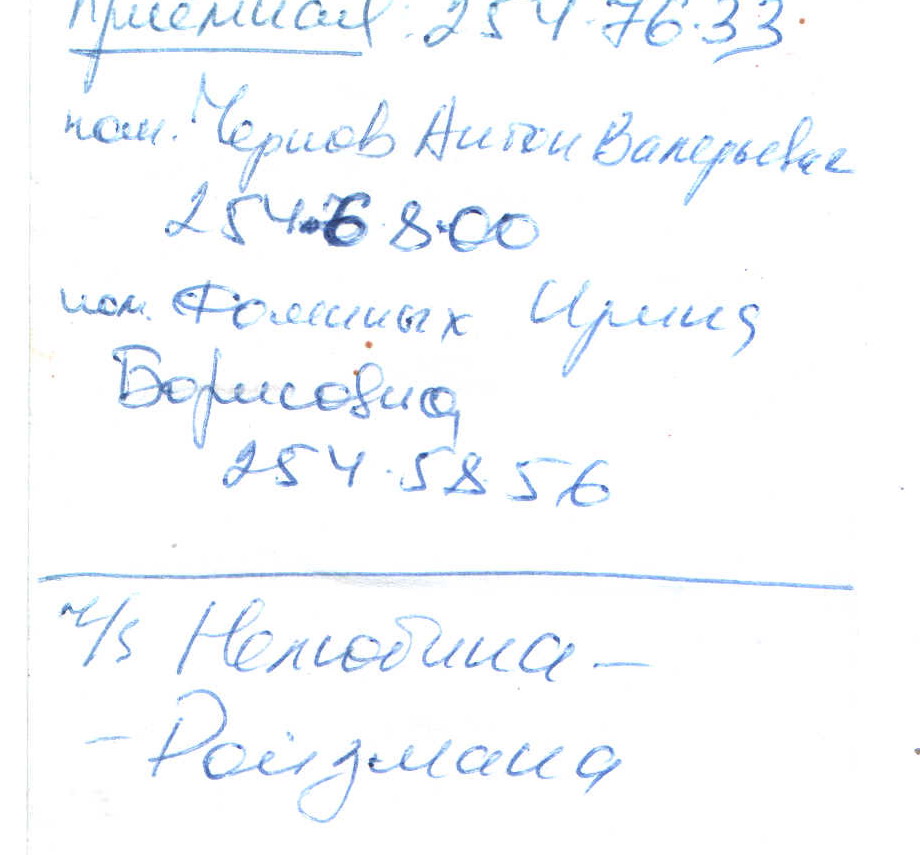 Приемная: 254.76.33
пом. Чернов Антон Валерьевич
254.6 8.00
пом. Фоминых Ирина
Борисовна
254.5856
ч/з Нелюбина –
– Ройзмана